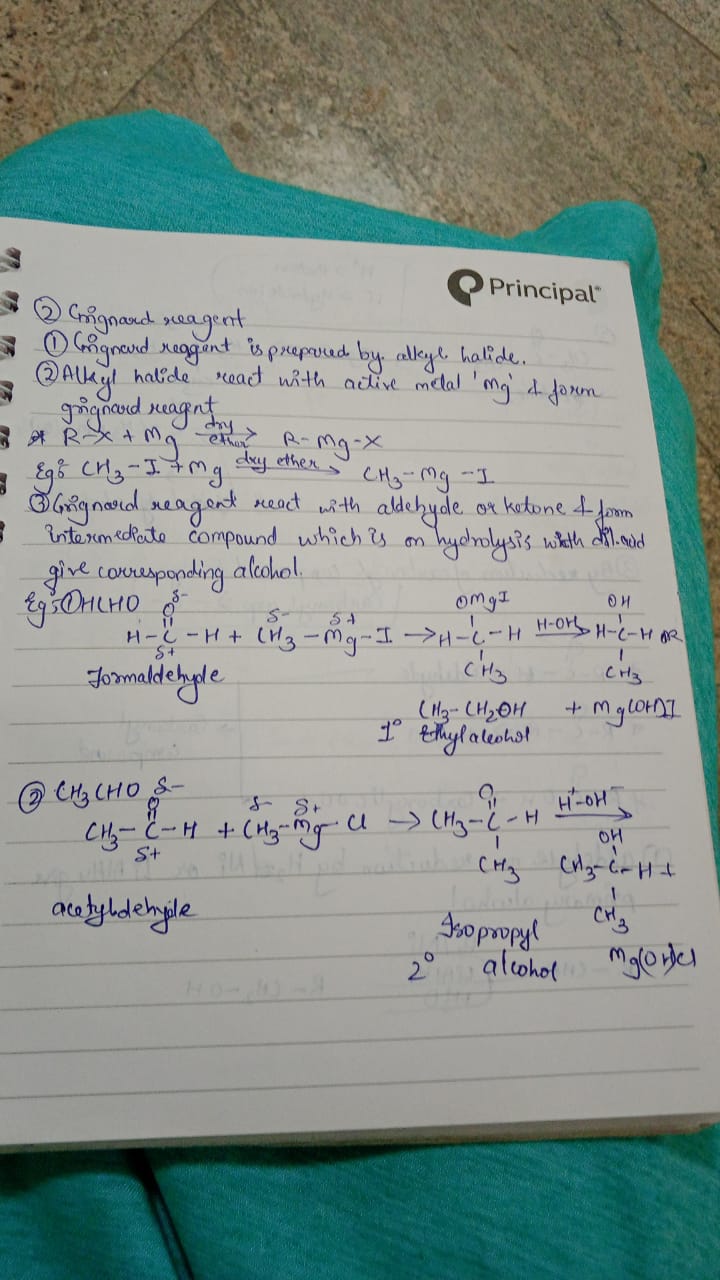 Principal
② Grignard reagent
① Grignard reagent is prepared by alkyl halide.
② Alkyl halide react with active metal 'mg' & form
grignard reagent
R-X + Mg dry ether → R-Mg-X
Eg: CH3-I + Mg dry ether → CH3-Mg-I
③ Grignard reagent react with aldehyde or ketone & form
intermediate compound which is on hydrolysis with dil.acid
give corresponding alcohol.
Eg: ① HCHO O δ- δ- δ+ OMgI OH
H-C-H + CH3-Mg-I → H-C-H H-OH → H-C-H OR
δ+ CH3 CH3
Formaldehyde
CH3-CH2OH + Mg(OH)I
1° Ethyl alcohol
② CH3CHO δ- O δ- δ+ O
CH3-C-H + CH3-Mg-Cl → CH3-C-H H+-OH- →
δ+ CH3
OH
CH3-C-H +
CH3
acetyldehyde
Isopropyl
2° alcohol Mg(OH)Cl